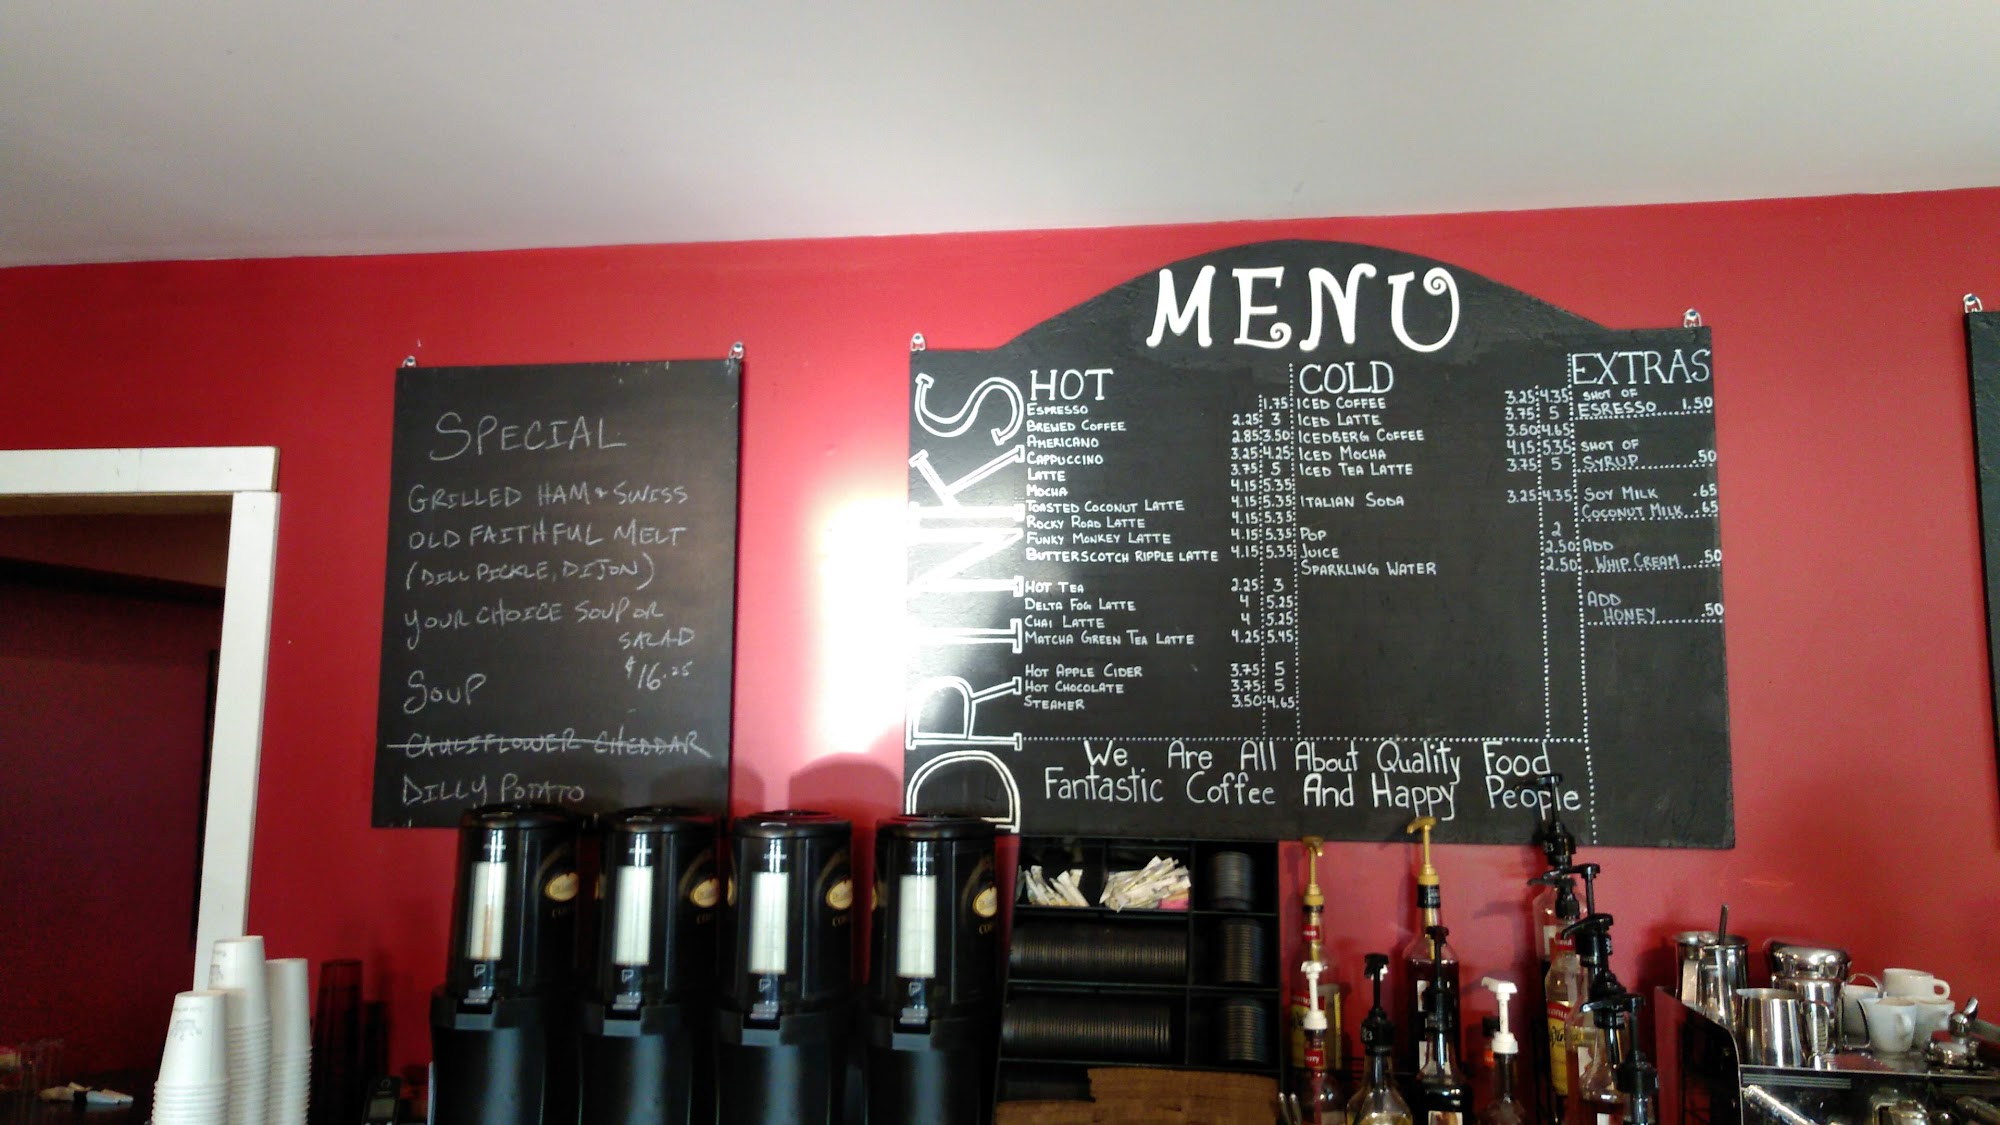 SPECIAL
GRILLED HAM & SWISS
OLD FAITHFUL MELT
(DILL PICKLE, DIJON)
YOUR CHOICE SOUP OR
SALAD
$16.25
SOUP
CAULIFLOWER CHEDDAR
DILLY POTATO
MENU
DRINKS
HOT
ESPRESSO 1.75
BREWED COFFEE 2.25 3
AMERICANO 2.85 3.50
CAPPUCCINO 3.25 4.25
LATTE 3.75 5
MOCHA 4.15 5.35
TOASTED COCONUT LATTE 4.15 5.35
ROCKY ROAD LATTE 4.15 5.35
FUNKY MONKEY LATTE 4.15 5.35
BUTTERSCOTCH RIPPLE LATTE 4.15 5.35
HOT TEA 2.25 3
DELTA FOG LATTE 4 5.25
CHAI LATTE 4 5.25
MATCHA GREEN TEA LATTE 4.25 5.45
HOT APPLE CIDER 3.75 5
HOT CHOCOLATE 3.75 5
STEAMER 3.50 4.65
COLD
ICED COFFEE 3.25 4.35
ICED LATTE 3.75 5
ICEDBERG COFFEE 3.50 4.65
ICED MOCHA 4.15 5.35
ICED TEA LATTE 3.75 5
ITALIAN SODA 3.25 4.35
POP 2
JUICE 2.50
SPARKLING WATER 2.50
EXTRAS
SHOT OF
ESRESSO 1.50
SHOT OF
SYRUP .50
SOY MILK .65
COCONUT MILK .65
ADD
WHIP CREAM .50
ADD
HONEY .50
We Are All About Quality Food
Fantastic Coffee And Happy People